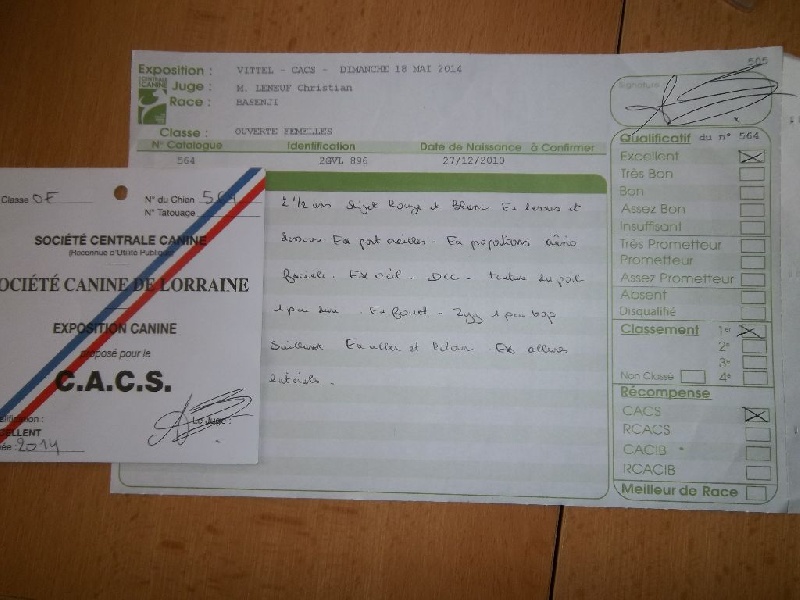 505
Exposition : VITTEL - CACS - DIMANCHE 18 MAI 2014
CENTRALE CANINE
Juge : M. LENEUF Christian
Race : BASENJI
Classe : OUVERTE FEMELLES
N° Catalogue Identification Date de Naissance à Confirmer
564 2GVL 896 27/12/2010
2 1/2 ans Sujet Rouge et Blanc Ex
Ex port oreilles. Ex proportions crânio
faciale. Ex œil. Dec. texture du poil
1 peu
Ex allures
latérales.
Signature
Qualificatif du n° 564
Excellent
Très Bon
Bon
Assez Bon
Insuffisant
Très Prometteur
Prometteur
Assez Prometteur
Absent
Disqualifié
Classement 1er
2e
3e
Non Classé 4e
Récompense
CACS
RCACS
CACIB
RCACIB
Meilleur de Race
Classe OF N° du Chien 564
N° Tatouage:
SOCIÉTÉ CENTRALE CANINE
(Reconnue d'Utilité Publique)
OCIÉTÉ CANINE DE LORRAINE
EXPOSITION CANINE
proposé pour le
C.A.C.S.
Le Juge :
CELLENT
2014